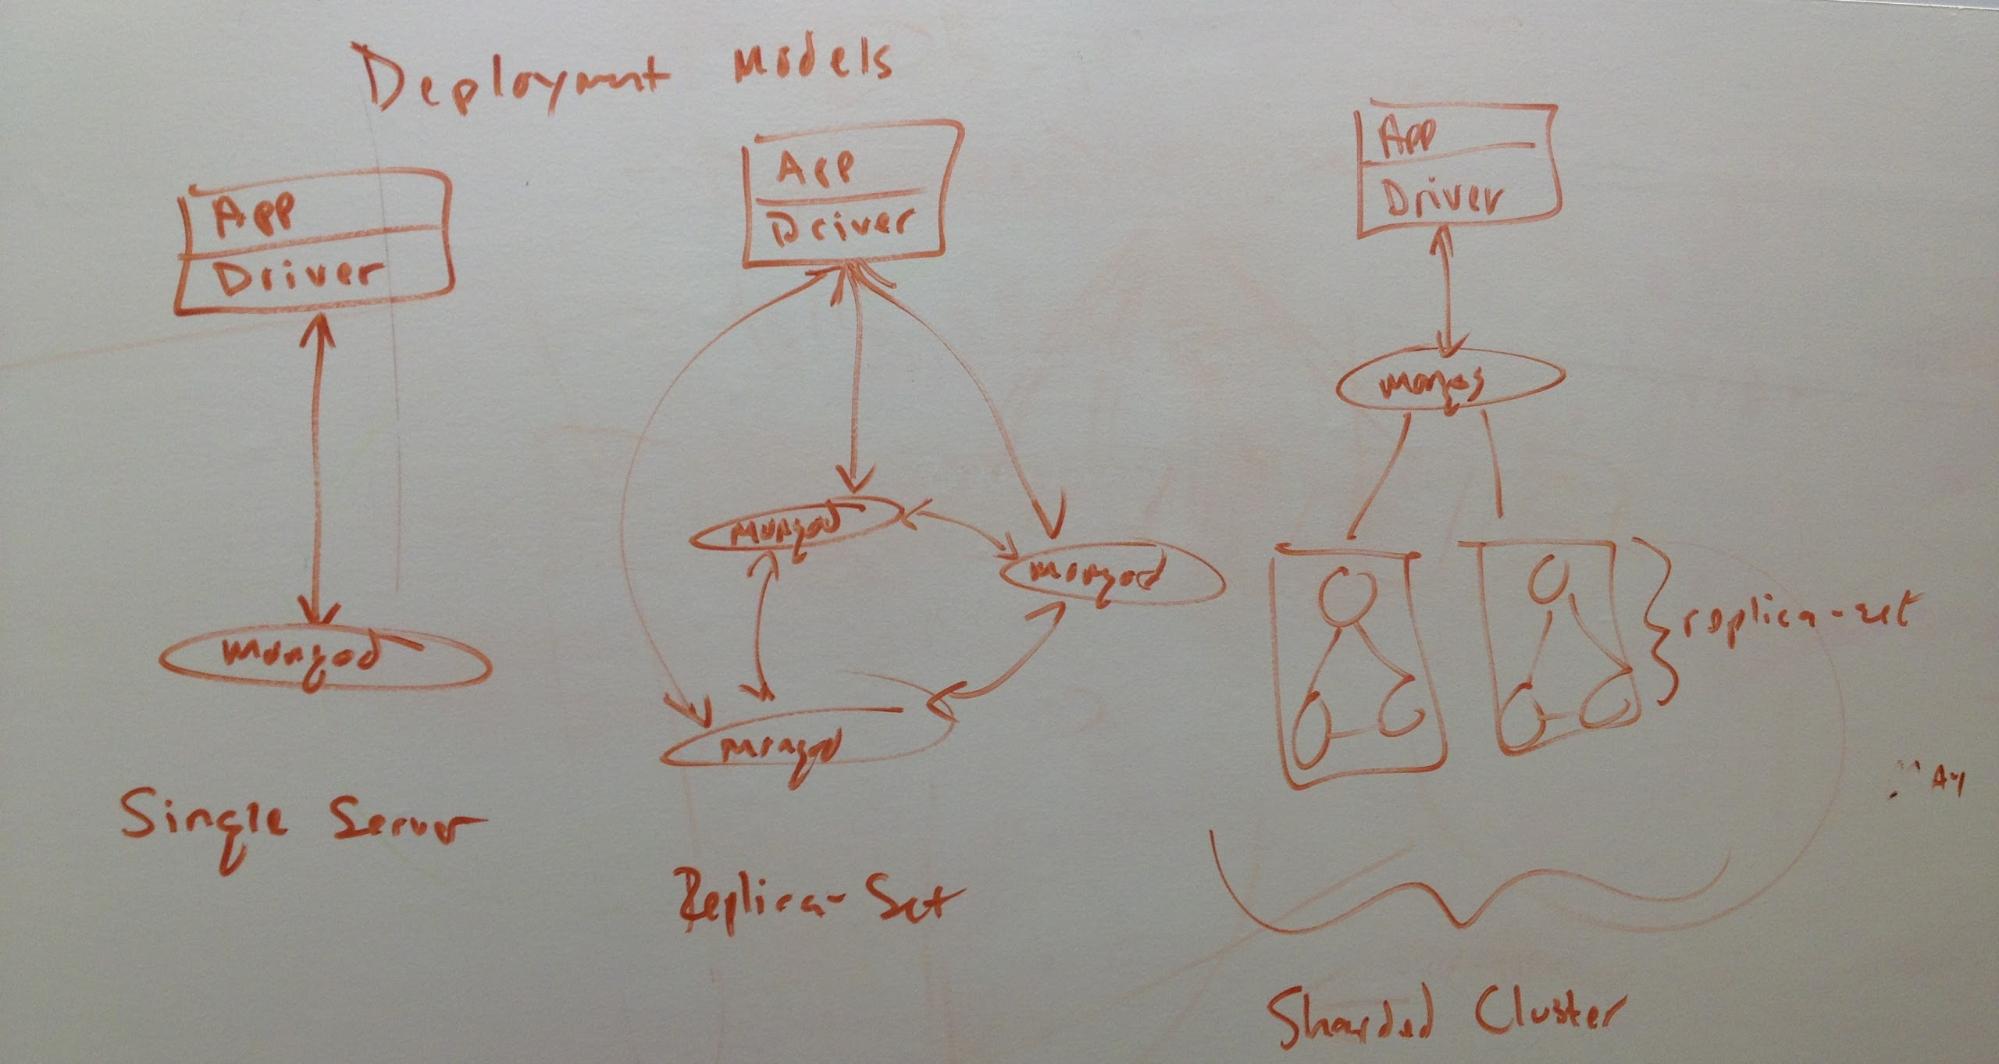 Deployment Models
App
Driver
mongod
Single Server
App
Driver
mongod
mongod
mongod
Replica-Set
App
Driver
mongos
replica-set
Sharded Cluster